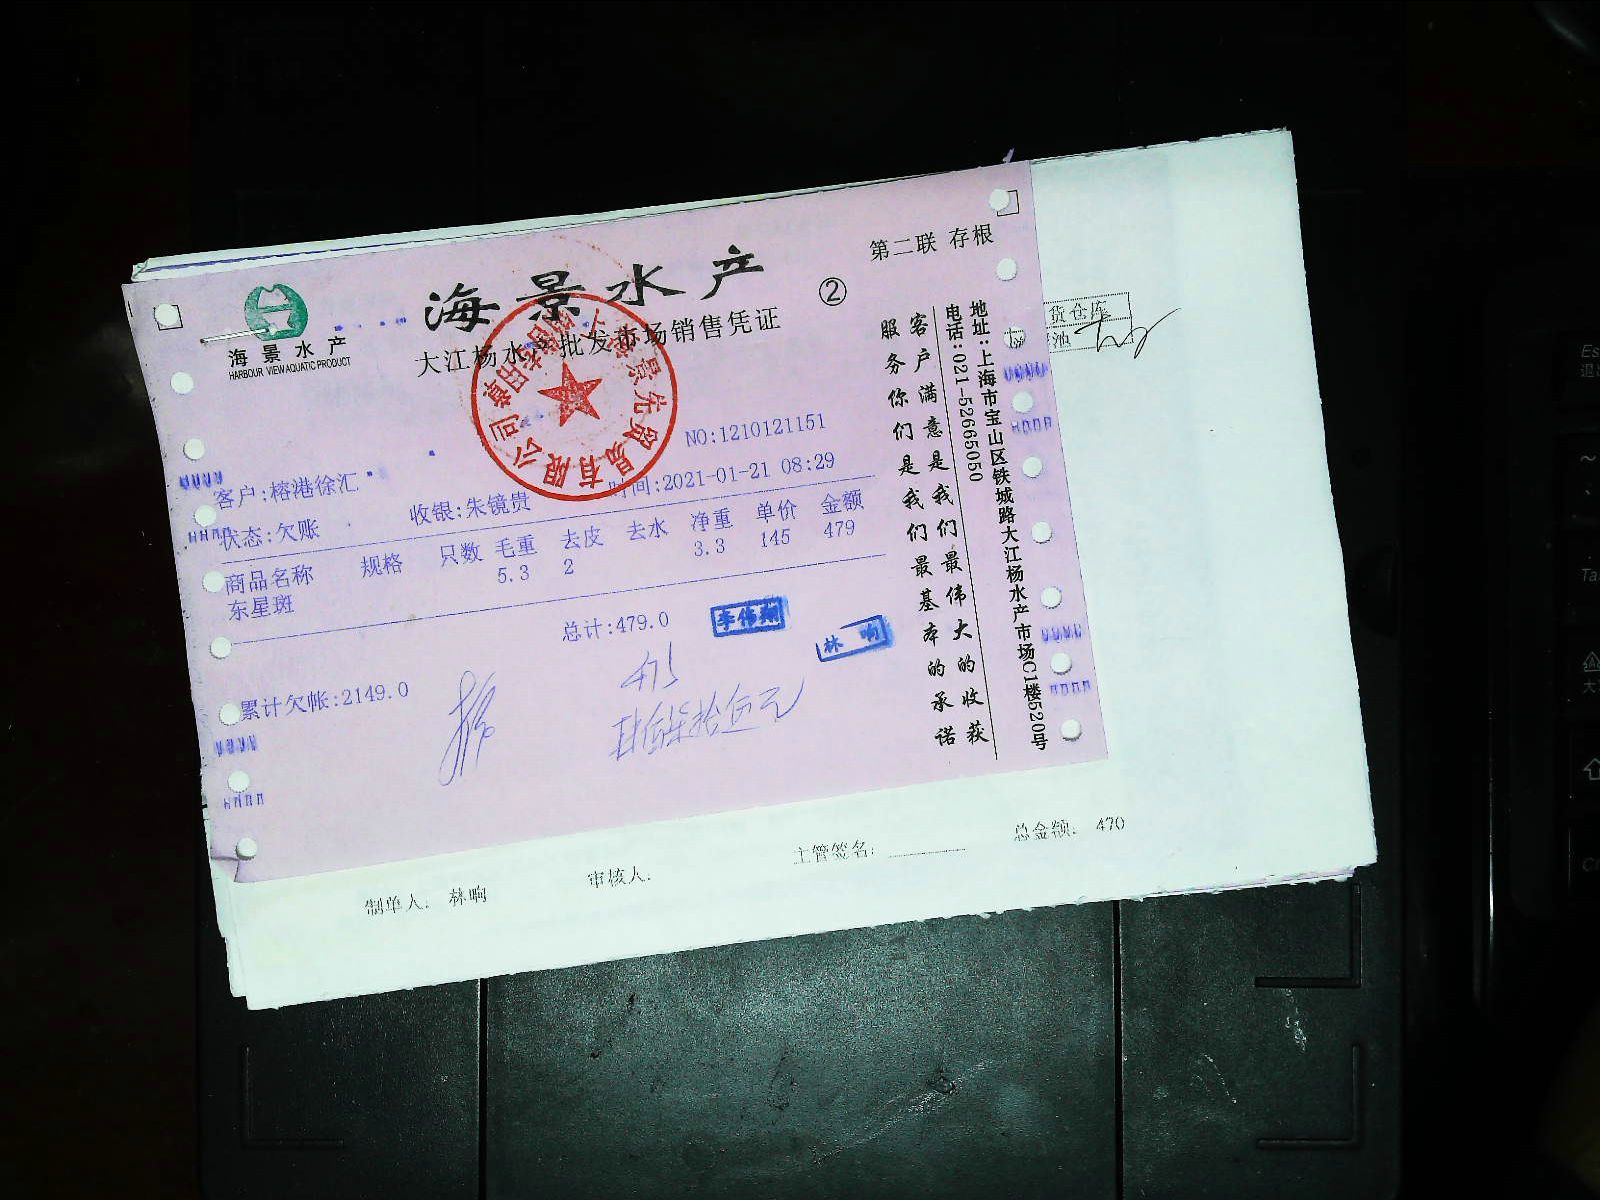 第二联 存根
海景水产
②
海景水产
HARBOUR VIEW AQUATIC PRODUCT
大江杨水产批发市场销售凭证
NO:1210121151
客户:榕港徐汇
时间:2021-01-21 08:29
状态:欠账
收银:朱镜贵
商品名称 规格 只数 毛重 去皮 去水 净重 单价 金额
东星斑 5.3 2 3.3 145 479
总计:479.0
李伟翔
林响
累计欠帐:2149.0
475
肆佰柒拾伍元
客户满意是我们最伟大的收获
服务你们是我们最基本的承诺
地址:上海市宝山区铁城路大江杨水产市场C1楼520号
电话:021-52665050
货仓库
池
制单人: 林响
审核人:
主管签名:
总金额: 470